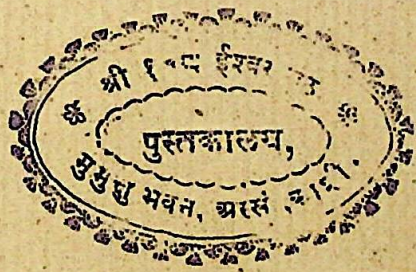 श्री १०८ ईश्वर
पुस्तकालय,
मुमुक्षु भवन, अस्सी, काशी.